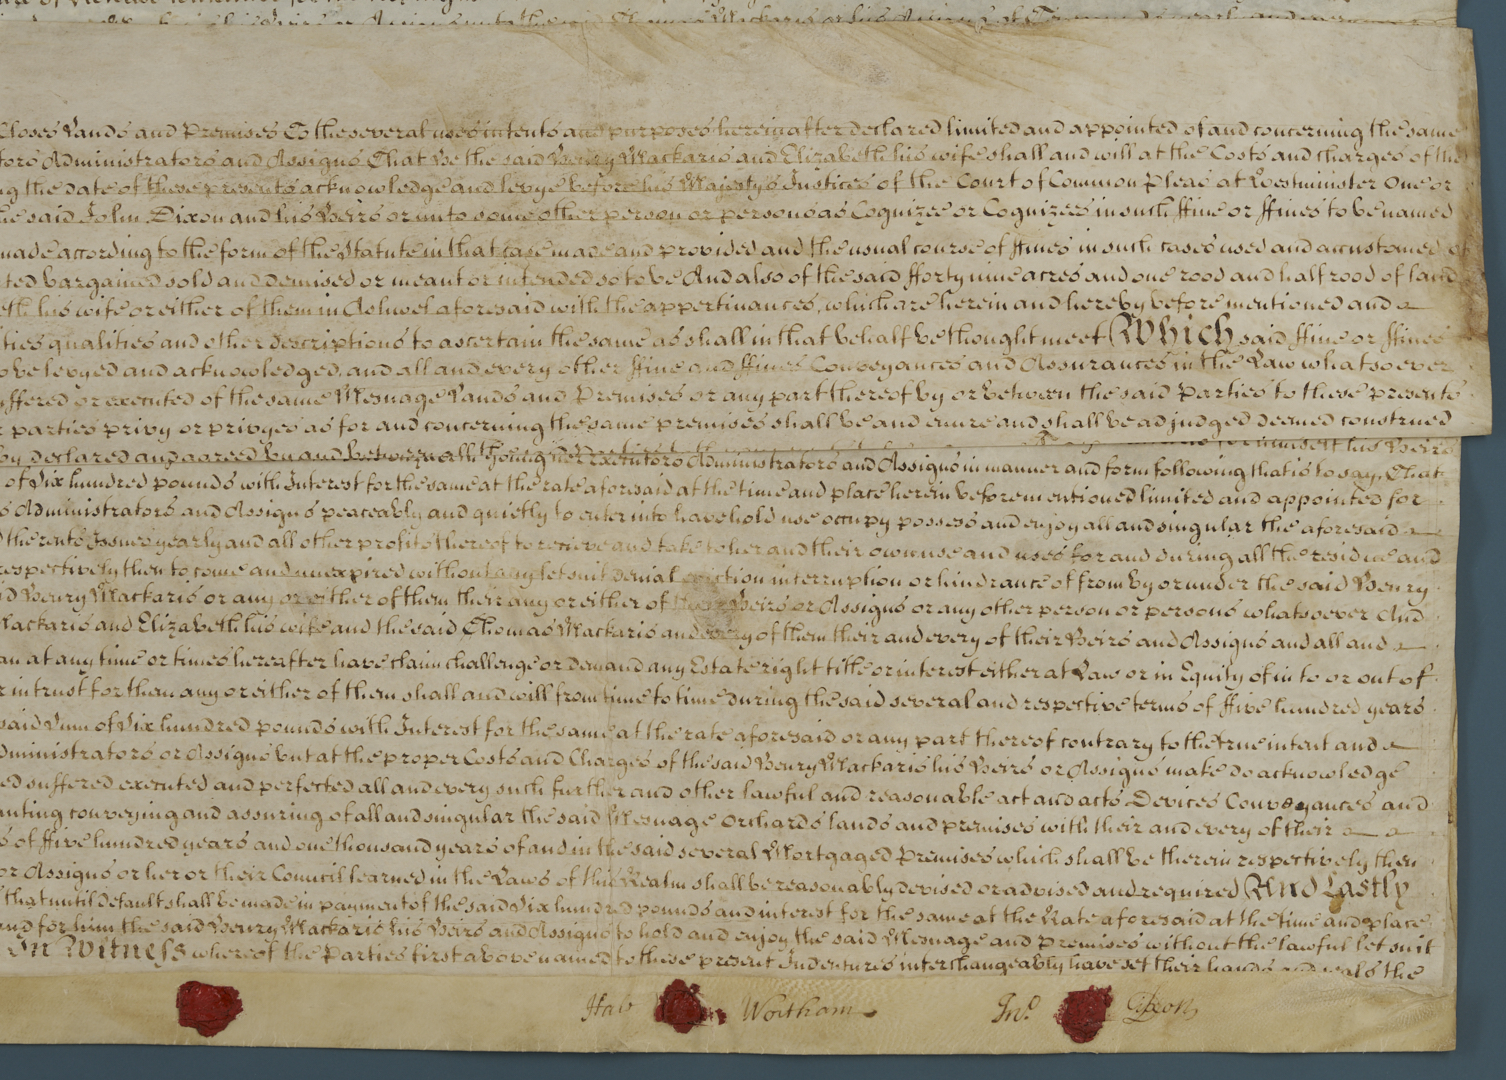 unto the said Thomas Mackaris or his
Closes Lands and Premises To the several uses intents and purposes hereinafter declared limited and appointed of and concerning the same
tors Administrators and Assigns That he the said Henry Mackaris and Elizabeth his wife shall and will at the Costs and charges of the
ng the date of these presents acknowledge and levye before his Majestys Justices of the Court of Common Pleas at Westminister One or
he said John Dixon and his Heirs or unto some other person or persons as Cognizee or Cognizees in such ffine or ffines to be named
made according to the form of the Statute in that case made and provided and the usual course of ffines in such cases used and accustomed of
ted bargained sold and demised or meant or intended so to be And also of the said fforty nine acres and one rood and half rood of land
eth his wife or either of them in Ashwel aforesaid with the appertinances, which are herein and hereby before mentioned and
ties qualities and other descriptions to ascertain the same as shall in that behalf be thought meet Which said ffine or ffines
o be levyed and acknowledged, and all and every other ffine and ffines Conveyances and Assurances in the Law whatsoever
uffered or executed of the same Mesuage Lands and Premises or any part thereof by or between the said Parties to these presents
r parties privy or privyes as for and concerning the same premises shall be and enure and shall be adjudged deemed construed
by declared and agreed by and between all
himself his Heirs
Executors Administrators and Assigns in manner and form following that is to say, That
of Six hundred pounds with Interest for the same at the rate aforesaid at the time and place herein before mentioned limited and appointed for
s Administrators and Assigns peaceably and quietly to enter into have hold use occupy possess and enjoy all and singular the aforesaid
d the rents Issues yearly and all other profits thereof to receive and take to her and their own use and uses for and during all the residue and
respectively then to come and unexpired without any let suit denial eviction interruption or hindrance of from by or under the said Henry
d Henry Mackaris or any or either of them their any or either of their Heirs or Assigns or any other person or persons whatsoever And
Mackaris and Elizabeth his wife and the said Thomas Mackaris and every of them their and every of their Heirs and Assigns and all and
an at any time or times hereafter have claim challenge or demand any Estate right title or interest either at Law or in Equity of in to or out of
r in trust for them any or either of them shall and will from time to time during the said several and respective terms of ffive hundred years
said Sum of Six hundred pounds with Interest for the same at the rate aforesaid or any part thereof contrary to the true intent and
dministrators or Assigns but at the proper Costs and Charges of the said Henry Mackaris his Heirs or Assigns make do acknowledge
ed suffered executed and perfected all and every such further and other lawful and reasonable act and acts Devices Conveyances and
anting conveying and assuring of all and singular the said Mesuage Orchards lands and premises with their and every of their
s of ffive hundred years and one thousand years of and in the said several Mortgaged Premises which shall be therein respectively then
or Assigns or her or their Council learned in the Laws of this Realm shall be reasonably devised or advised and required And Lastly
that until default shall be made in payment of the said Six hundred pounds and interest for the same at the Rate aforesaid at the time and place
and for him the said Henry Mackaris his Heirs and Assigns to hold and enjoy the said Mesuage and Premises without the lawful let suit
In Witness whereof the Parties first above named to these present Indentures interchangeably have set their hands and seals the
Wortham Jno. Dixon